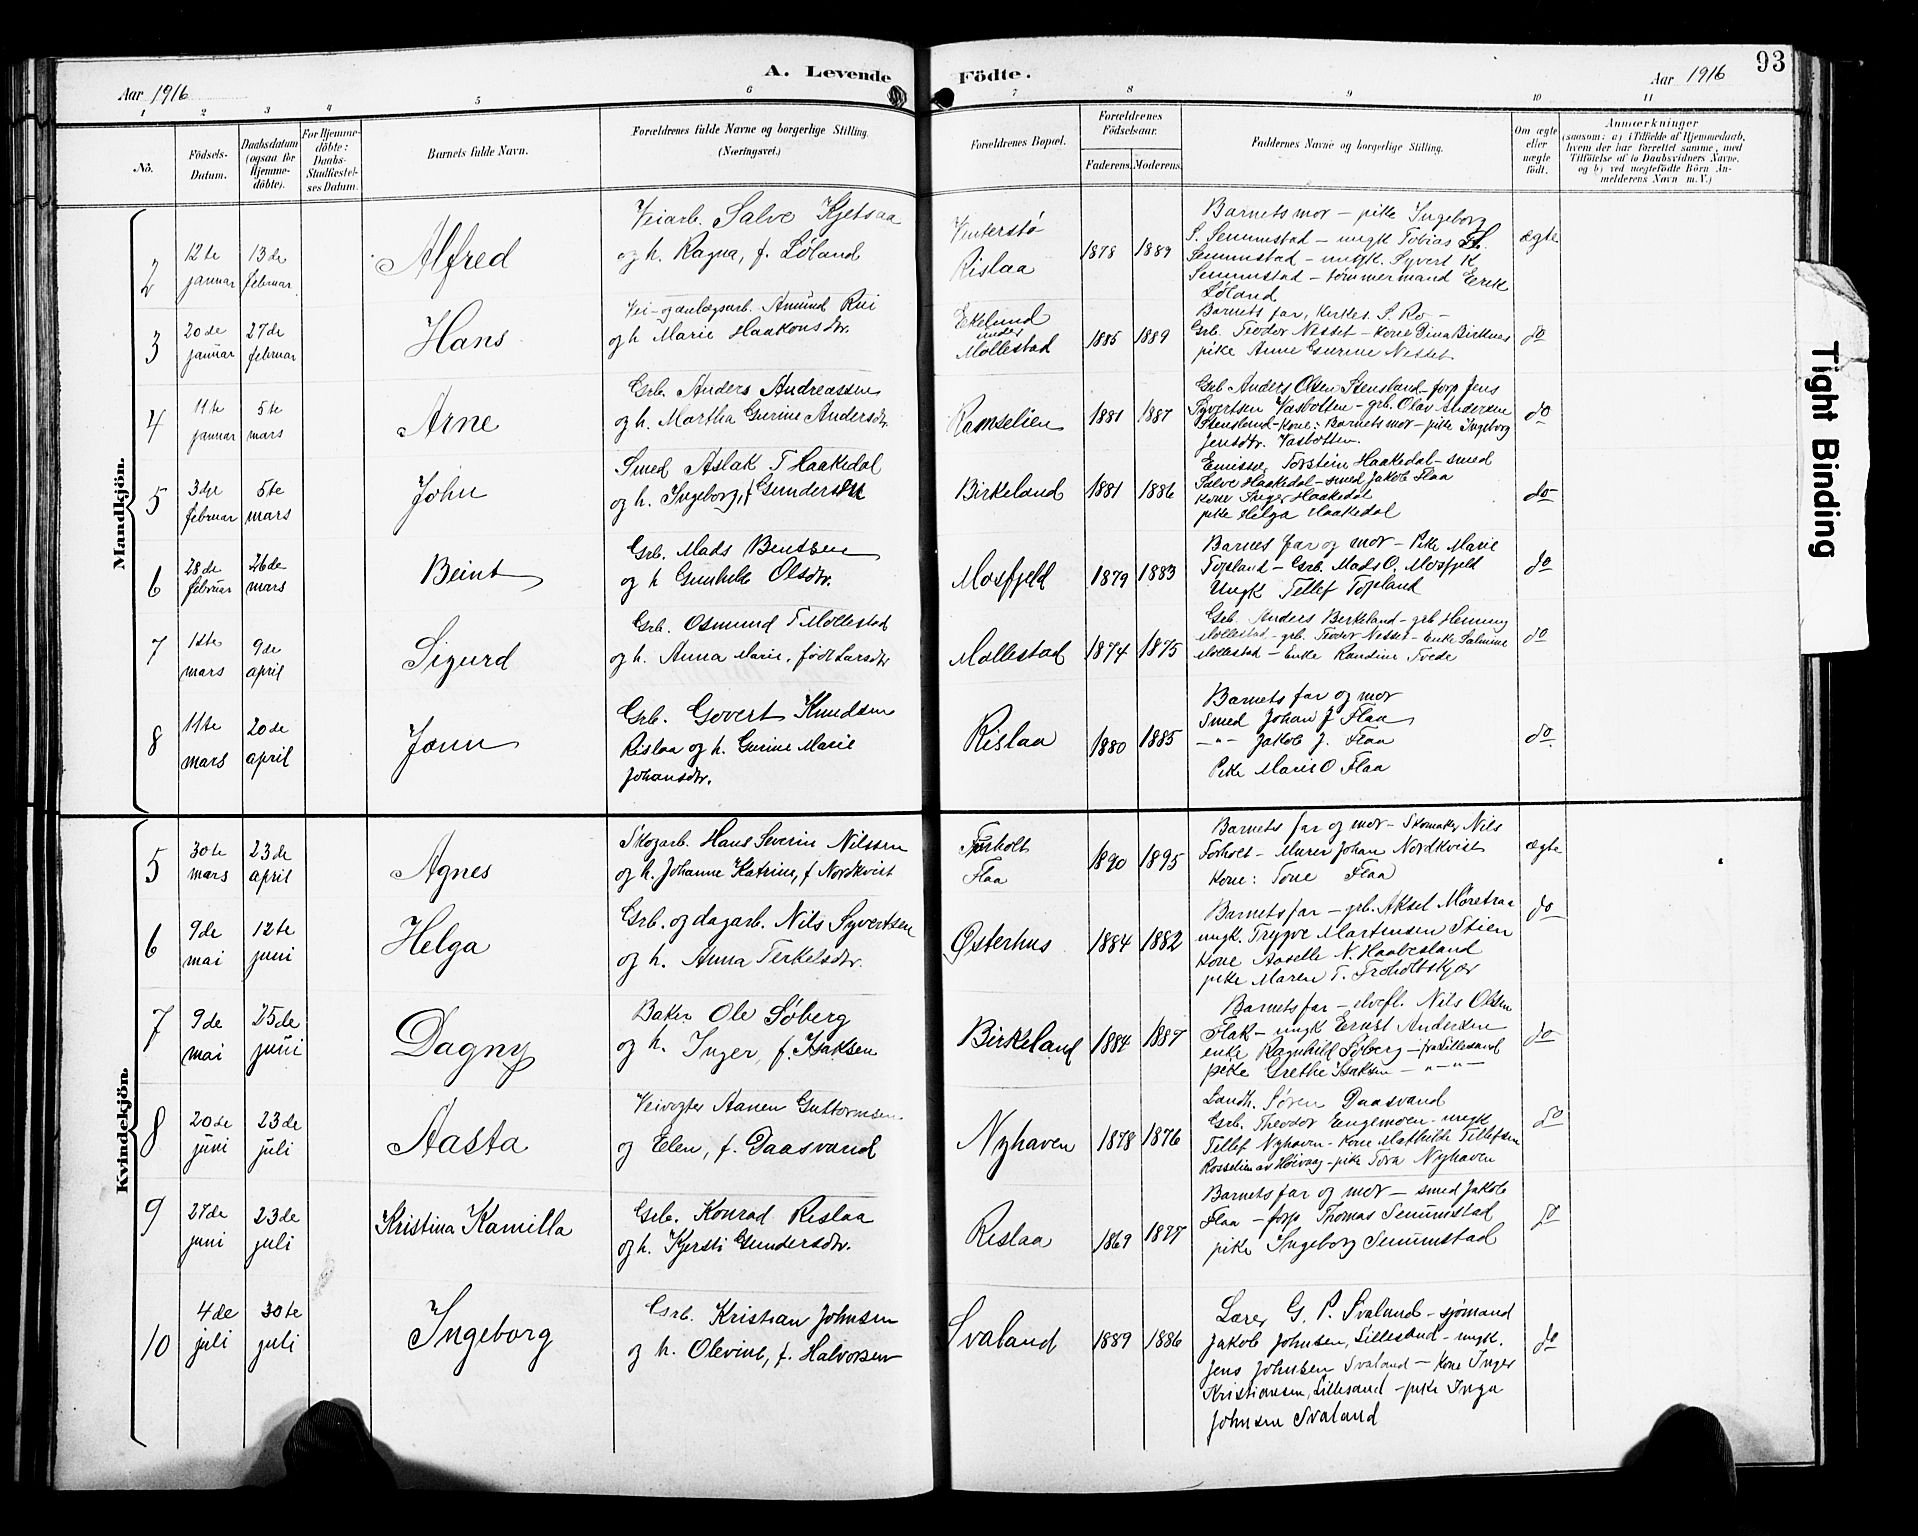 A. Levende Födte.
93
Aar 1916
Aar 1916
1 2 3 4 5 6 7 8 9 10 11
No.
Födsels-
Datum.
Daabsdatum
(ogsaa for
Hjemme-
döbte).
For Hjemme-
döbte:
Daabs-
Stadfæstel-
ses Datum.
Barnets fulde Navn.
Forældrenes fulde Navne og borgerlige Stilling.
(Næringsvei.)
Forældrenes Bopæl.
Forældrenes
Födselsaar.
Faderens. Moderens.
Faddernes Navne og borgerlige Stilling.
Om ægte
eller
uægte
födt.
Anmærkninger
(saasom: a) i Tilfælde af Hjemmedaab,
hvem der har forrettet samme, med
Tilföielse af to Daabsvidners Navne,
og b) ved uægtefödte Börn An-
melderens Navn m. V.)
Mandkjön.
2
12te
januar
13de
februar
Alfred
Veiarb. Salve Kjetsaa
og h. Ragna, f. Løland
Vinterstø
Rislaa
1878
1889
Barnets mor – pike Ingeborg
S. Senumstad – ungk Tobias
Senumstad – ungk. Syvert K
Senumstad – tømmermand Erik
Løland
ægte
3
20de
januar
27de
februar
Hans
Vei- og anlægsarb. Amund Rui
og h Marie Haakonsdtr.
Ekelund
under
Møllestad
1885
1889
Barnets far, kirkes. S. Ro –
Grb. Teodor Nesset – kone Dina Birknes
pike Anne Gurine Nesset
do
4
11te
januar
5te
mars
Arne
Grb. Anders Andreassen
og h. Martha Gurine Andersdtr.
Ramselien
1881
1887
Grb Anders Olsen Stensland – forp Jens
Syvertsen Vasbotten – grb. Olav Andersen
Stensland – kone: Barnets mor – pike Ingeborg
Jensdtr. Vasbotten.
do
5
3dje
februar
5te
mars
John
Smed Aslak T Haakedal
og h. Ingeborg, f Gundersen
Birkeland
1881
1886
Emissær Torstein Haakedal – smed
Salve Haakedal – smed Jakob Flaa
kone Inger Haakedal
pike Helga Haakedal
do
6
28de
februar
26de
mars
Beint
Grb. Mads Bentsen
og h Gunhild Olsdtr.
Mosfjeld
1879
1883
Barnes far og mor – Pike Marie
Topland – Grb. Mads O. Mosfjeld
Ungk Tellef Topland
do
7
1ste
mars
9de
april
Sigurd
Grb. Osmund T Møllestad
og h. Anna Marie, født Larsdtr
Møllestad
1874
1875
Grb. Anders Birkeland – grb Henning
Møllestad – grb. Teodor Nesset – Enke Salmine
Møllestad – Enke Randine Tvede
do
8
11te
mars
20de
april
Jonn
Grb. Govert Knudsen
Rislaa og h. Gurine Marie
Johansdtr.
Rislaa
1880
1885
Barnets far og mor
Smed Johan J Flaa
–"– Jakob J. Flaa
Pike Marie O Flaa
do.
Kvindekjön.
5
30te
mars
23de
april
Agnes
Skogarb. Hans Severin Nilssen
og h. Johanne Katrine, f Nordkvist
Forholt
Flaa
1890
1895
Barnets far og mor – Skomaker Nils
Forholt – Murer Johan Nordkvist
kone: Tone Flaa
ægte
6
9de
mai
12te
juni
Helga
Grb. og dagarb. Nils Syvertsen
og h. Anna Terkelsdtr.
Østerhus
1884
1882
Barnets far – grb. Aksel Møretraa
ungk. Trygve Martinsen Stien
kone Aaselle N. Haabesland
pike Maren T. Froholtskjær
do
7
9de
mai
25de
juni
Dagny
Baker Ole Søberg
og h. Inger, f. Isaksen
Birkeland
1884
1887
Barnets far – elvefl. Nils Olsen
Flak – ungk Ernst Andersen
enke Ragnhild Søberg – fra Lillesand
pike Grethe Isaksen – " – " –
do
8
20de
juni
23de
juli
Aasta
Veivogter Aanen Guttormsen
og Elen, f. Daasvand
Nyhaven
1878
1876
Landh. Søren Daasvand
Grb. Theodor Engemoen – ungk
Tellef Nyhaven – kone Mathilde Tellefsen
Rosselien av Høivaag – pike Tora Nyhaven
do
9
27de
juni
23de
juli
Kristina Kamilla
Grb. Konrad Rislaa
og h. Kjersti Gundersdtr.
Rislaa
1869
1877
Barnets far og mor – smed Jakob
Flaa – forp Thomas Senumstad
pike Ingeborg Senumstad
do
10
4de
juli
30te
juli
Ingeborg
Grb. Kristian Johnsen
og h. Olevine, f. Halvorsen
Svaland
1889
1886
Lærer G. P. Svaland – sjømand
Jakob Johnsen, Lillesand – ungk.
Jens Johnsen Svaland – kone Inger
Kristiansen, Lillesand – pike Inga
Johnsen Svaland
do
Tight Binding